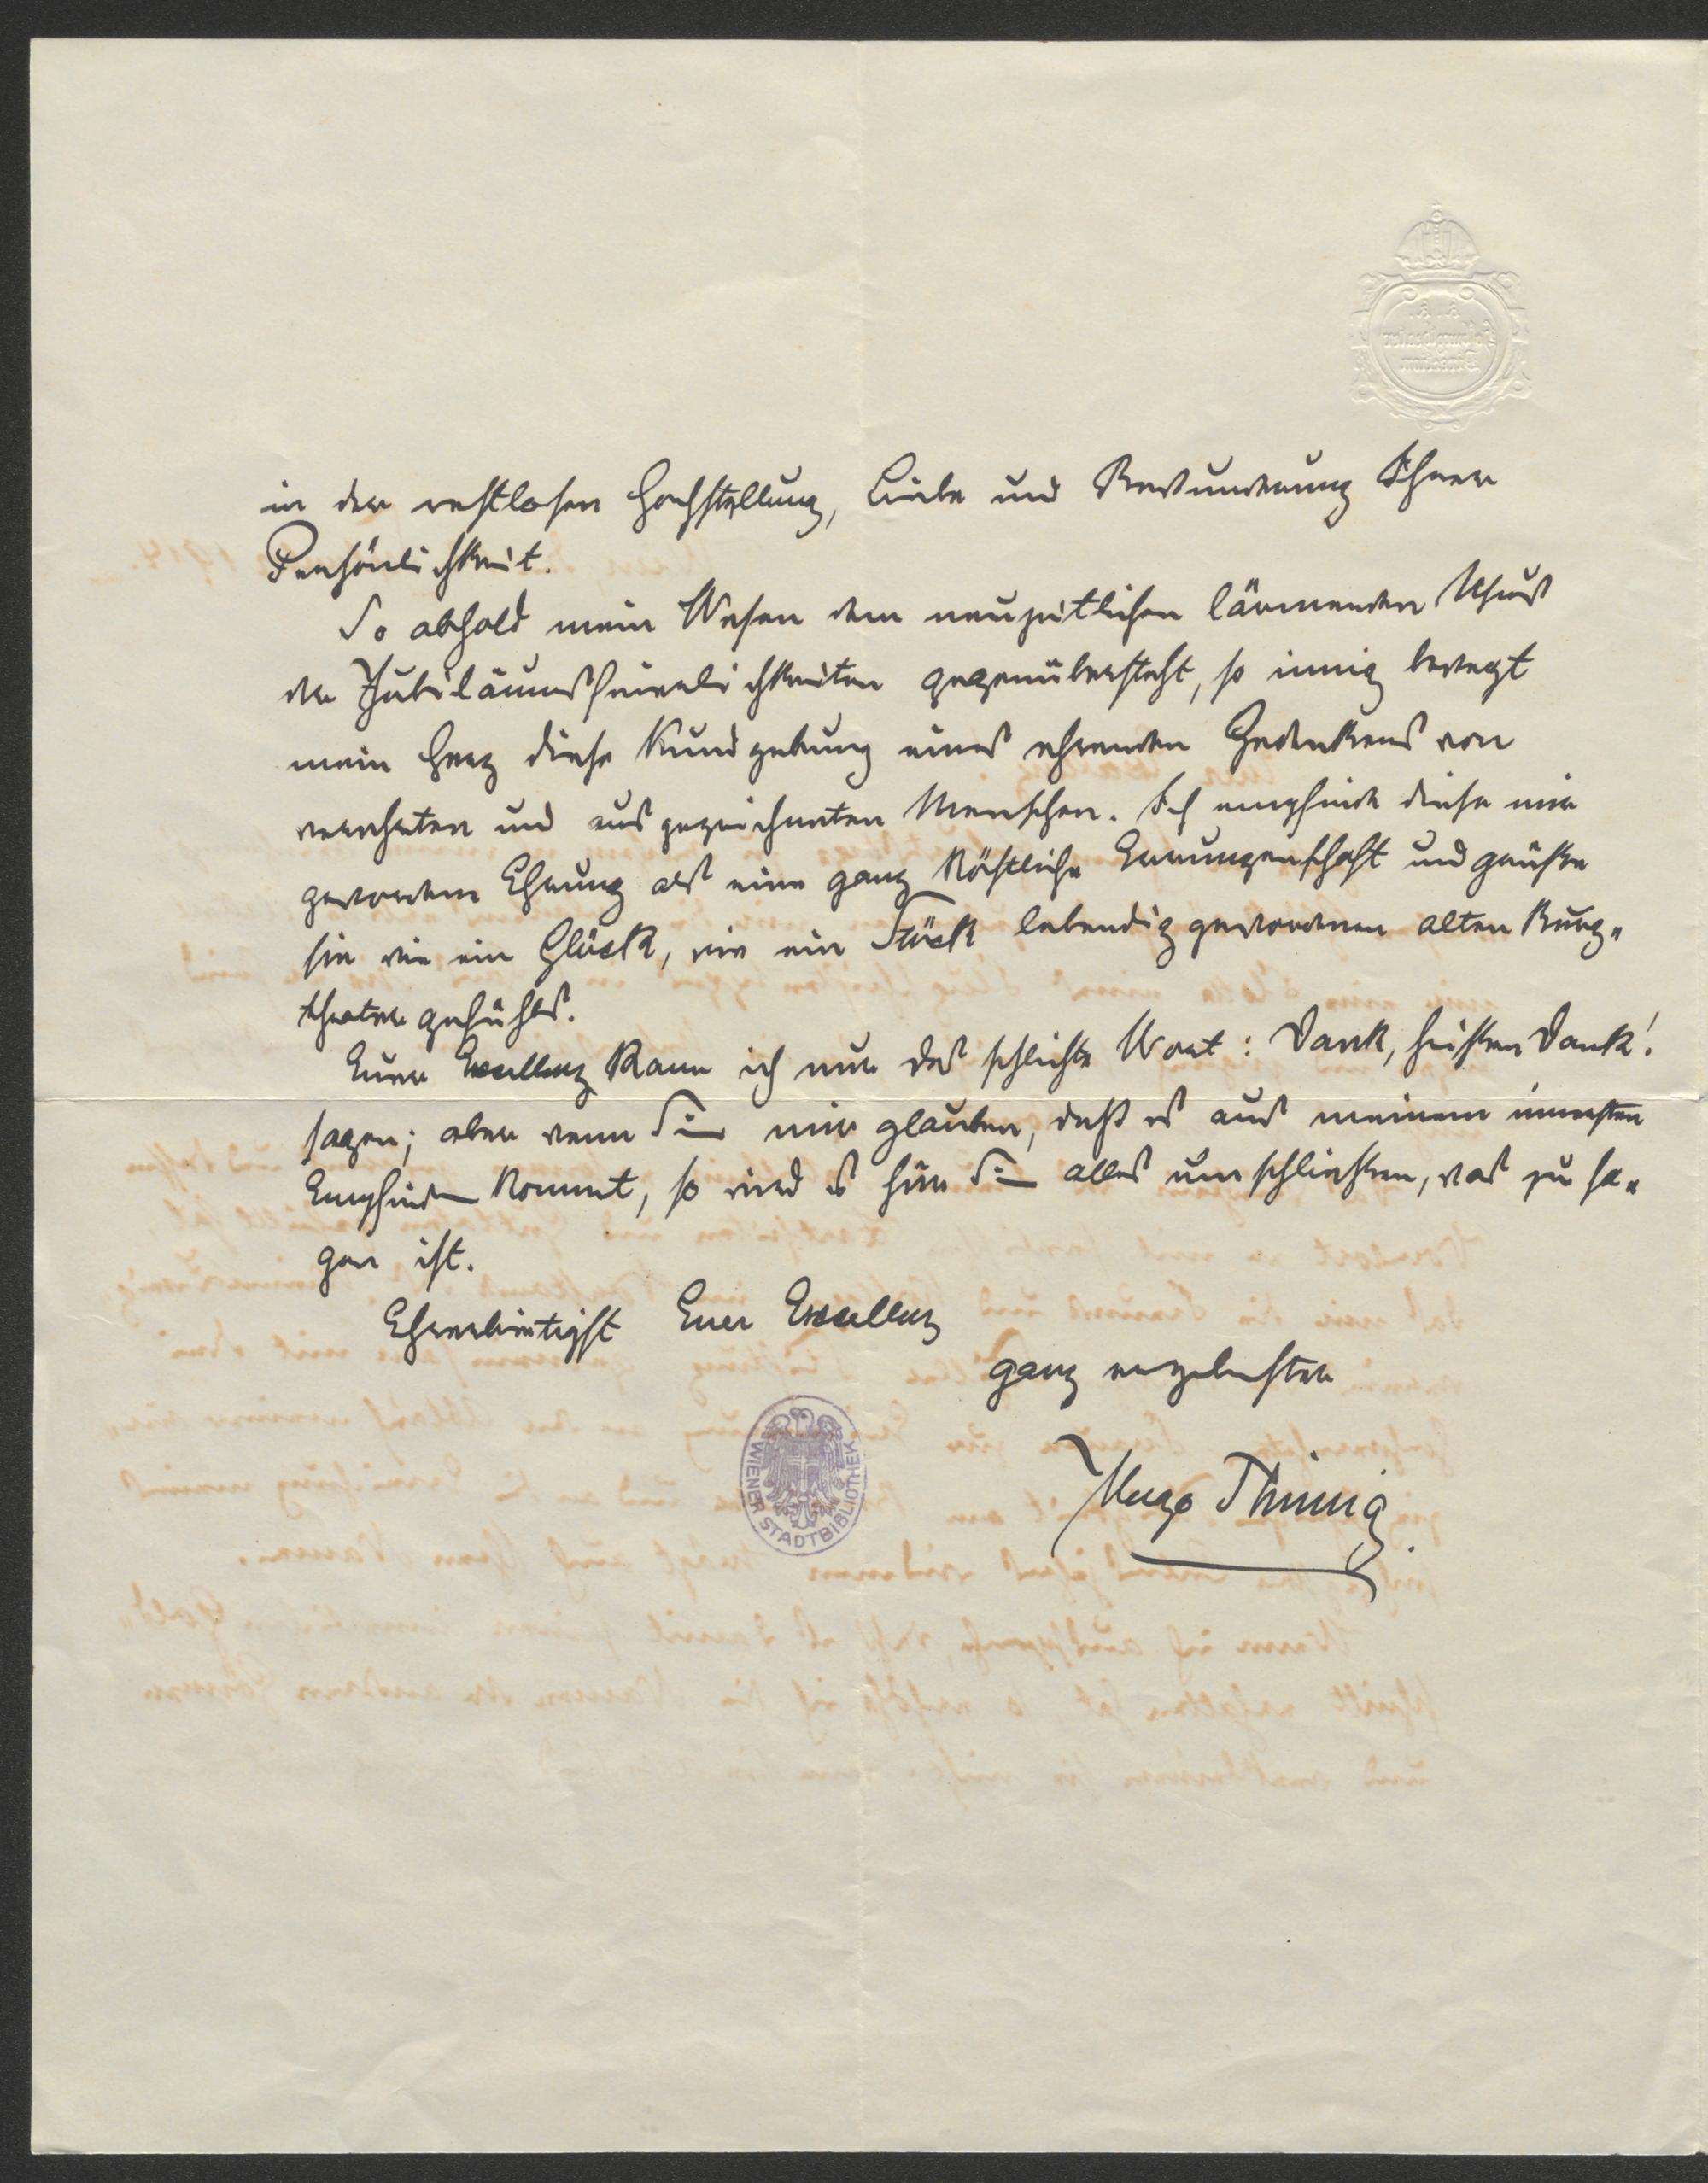 in der restlosen Hochstellung, Liebe und Bewunderung Ihrer
Persönlichkeit.
So abhold mein Wesen dem neuzeitlichen lärmenden Usus
der Jubiläumsfeierlichkeiten gegenübersteht, so innig bewegt
mein Herz diese Kundgebung eines ehrenden Gedenkens von
verehrten und ausgezeichneten Menschen. Ich empfinde diese mir
gewordene Ehrung als eine ganz köstliche Errungenschaft und grüße
sie wie ein Glück, wie ein Stück lebendig gewordenen alten Burg-
theatergefühls.
Euer Excellenz kann ich nur das schlichte Wort: Dank, heißen Dank!
sagen; aber wenn Sie mir glauben, daß es aus meinem innersten
Empfinden kommt, so wird es für Sie alles umschließen, was zu sa-
gen ist.
Ehrerbietigst Euer Excellenz
ganz ergebenster
Hugo Thimig
WIENER STADTBIBLIOTHEK